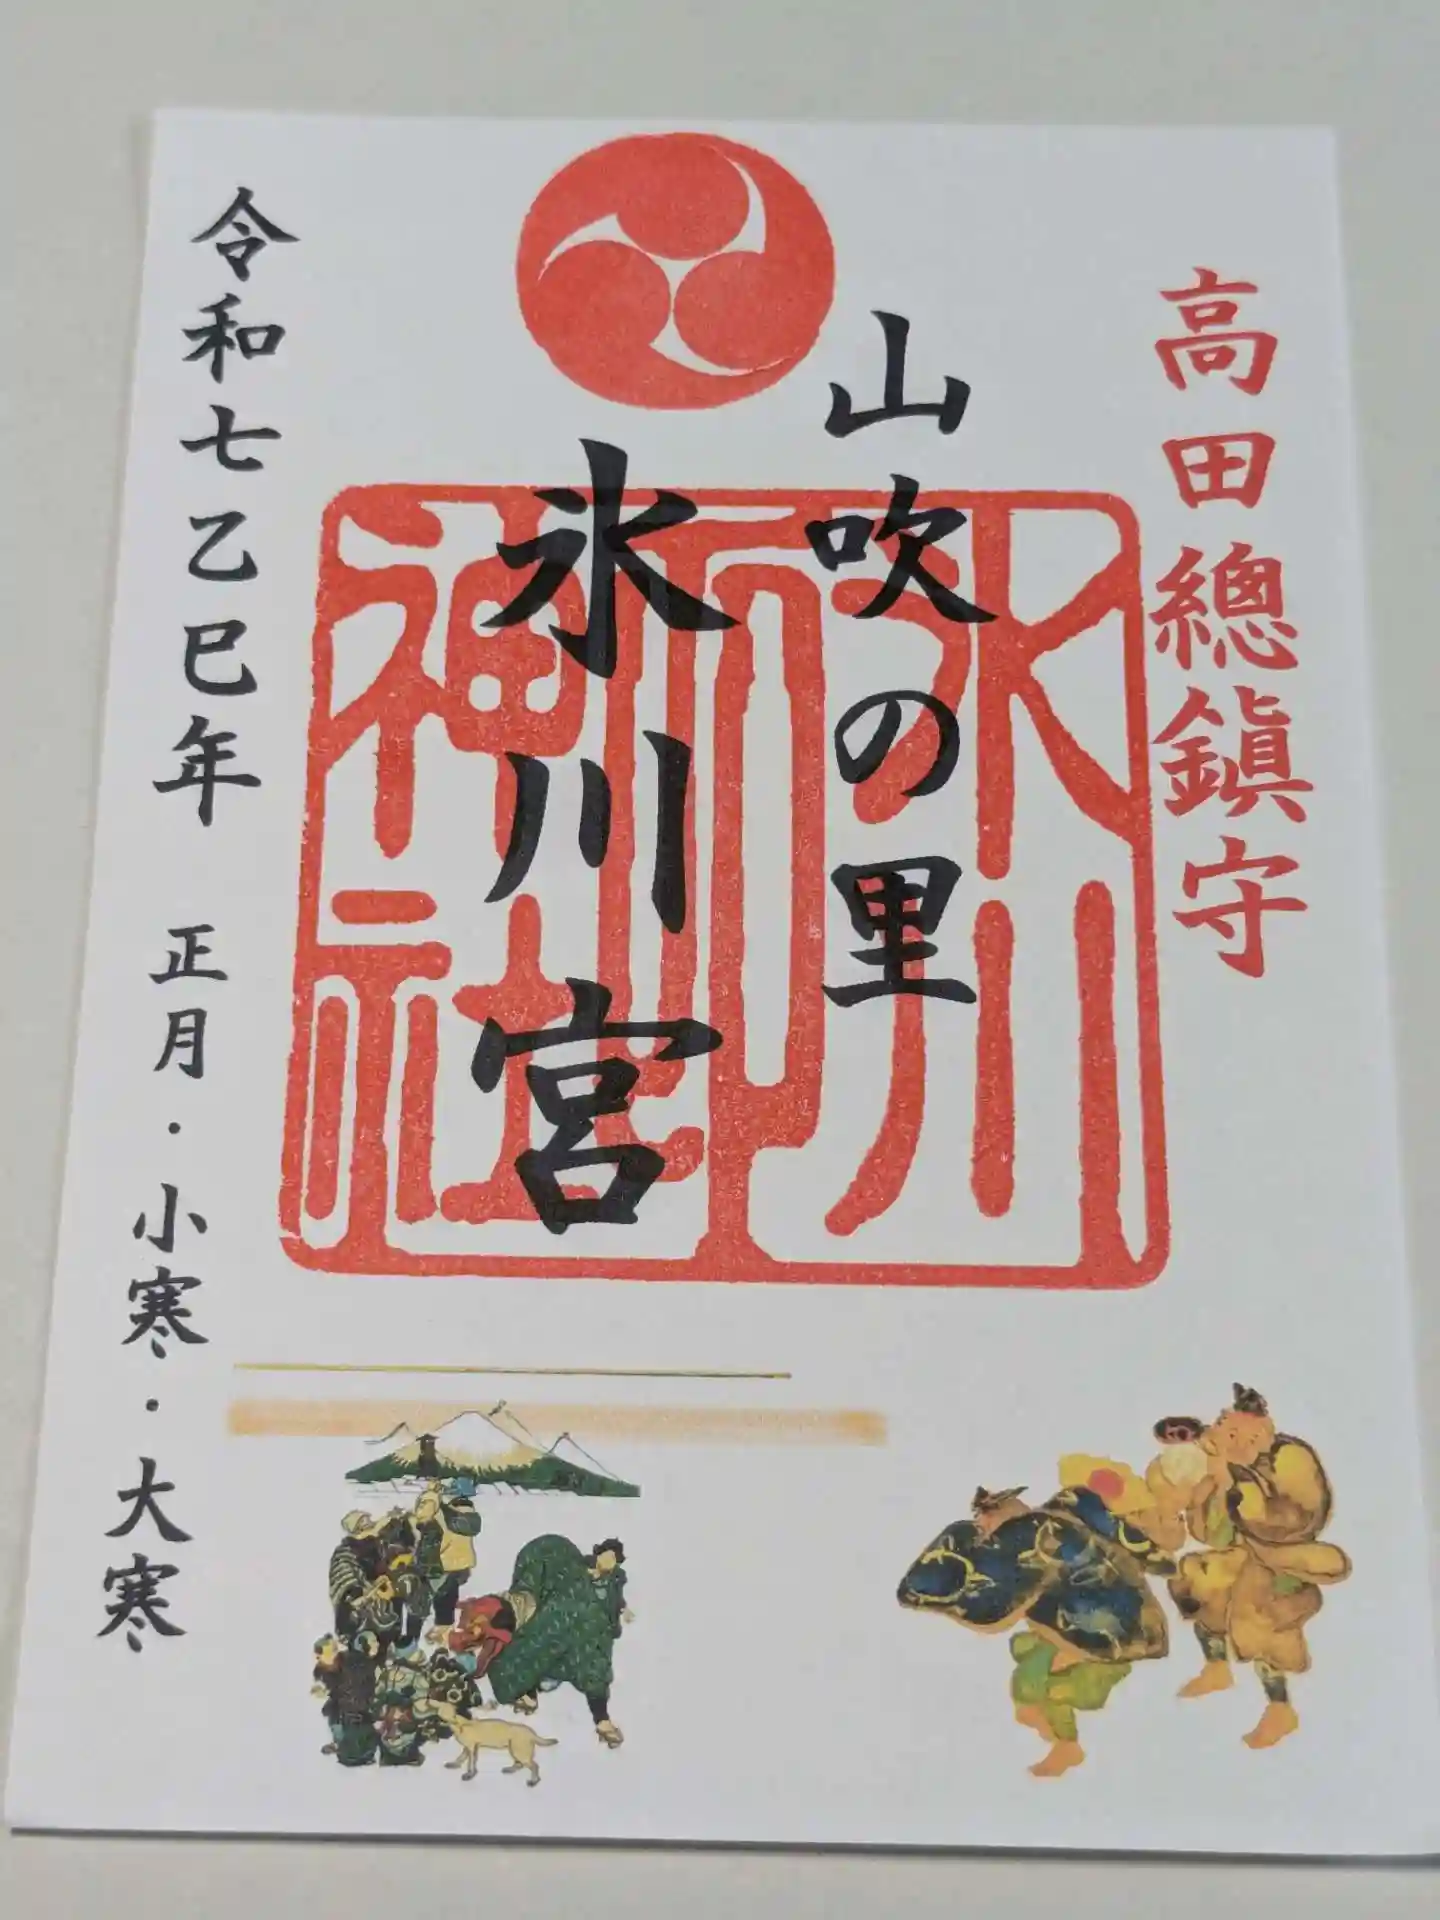 高田總鎮守
山吹の里
氷川宮
氷川
神社
令和七乙巳年 正月・小寒・大寒